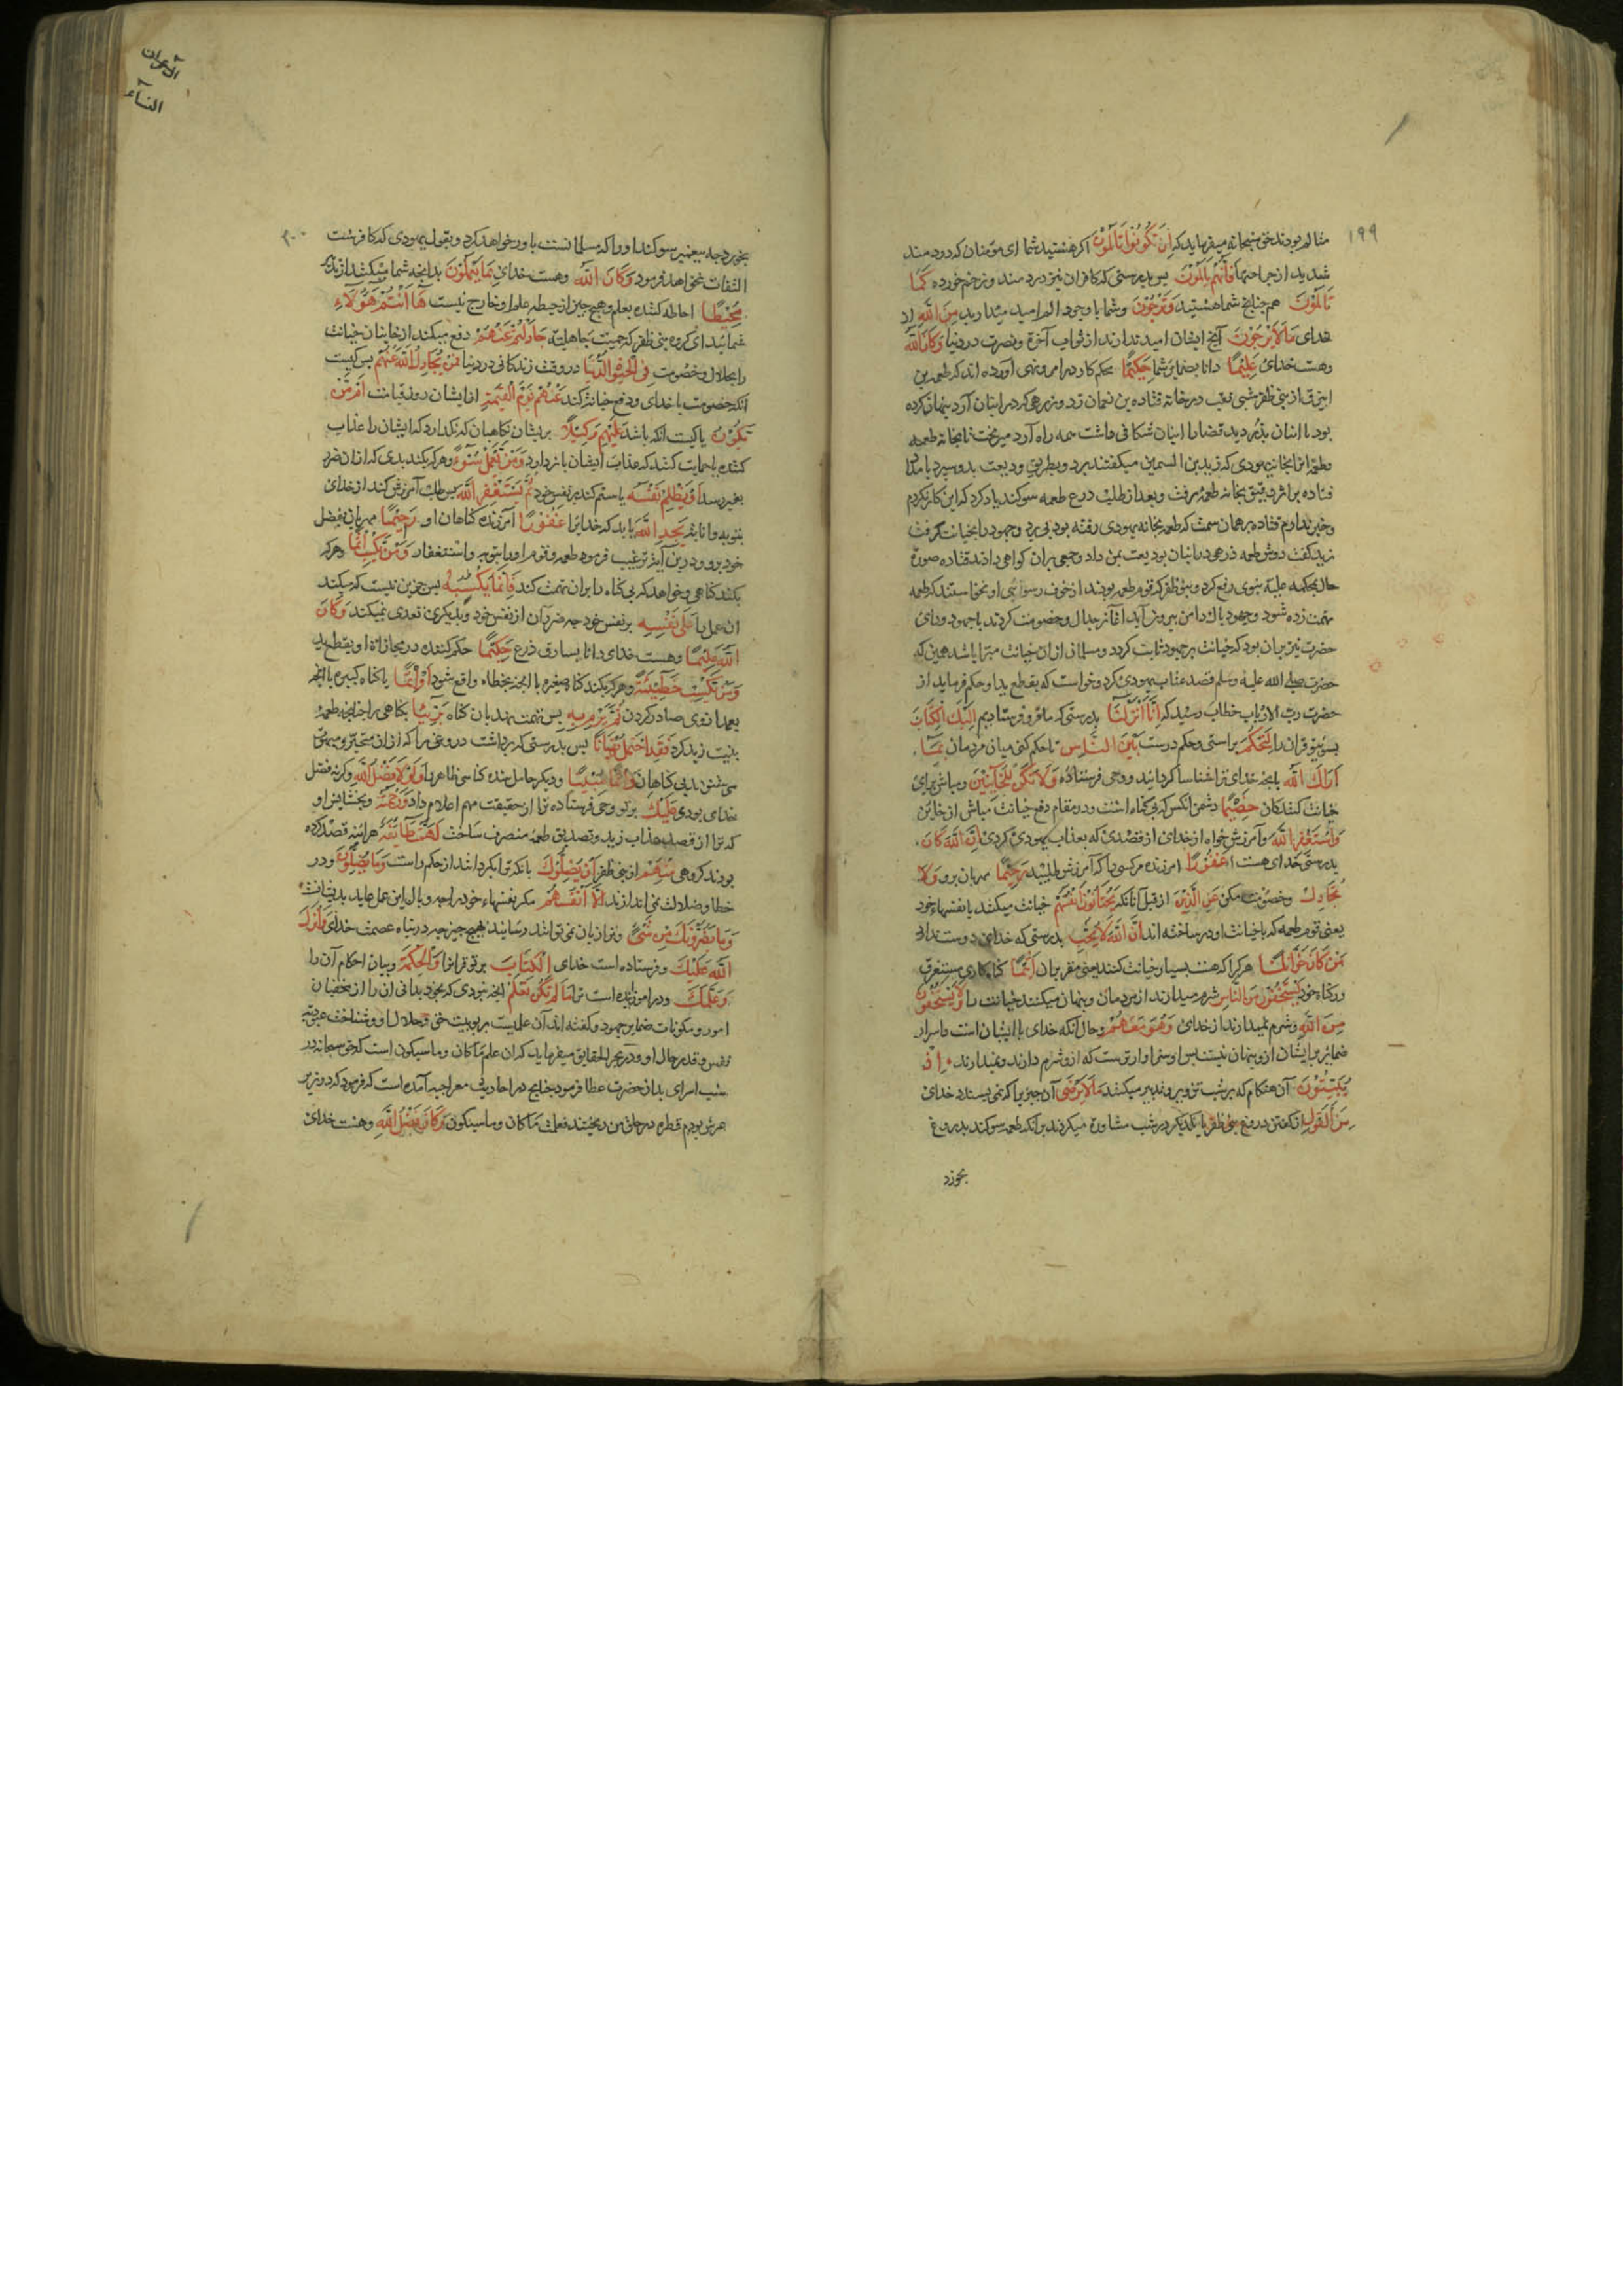 ۱۹۹
متالم بودند حق سبحانه میفرماید که اِنْ تَكُونُوا تَأْلَمُونَ اکر هستید شما ای مؤمنان که درد مند
شدید از جراحتها فَاِنَّهُمْ يَأْلَمُونَ پس بدرستی که کافران نیز درد مند و زخم خورده كَمَا
تَأْلَمُونَ هم چنانچه شما هستید وَتَرْجُونَ و شما با وجود الم امید میدارید مِنَ اللّٰهِ از
خدای مَا لَا يَرْجُونَ آنچ ایشان امید ندارند از ثواب آخرة و نصرت در دنیا وَكَانَ اللّٰهُ
و هست خدای عَلِيمًا دانا بضمایر شما حَكِيمًا محکم کار در امر و نهی آورده اند که طعمه بن
ابیرق از بنی ظفر شبی نقب در خانه قتاده بن نعمان زد و زرهی که در انبان آرد پنهان کرده
بود با انبان بدزدید قضا را انبان شکافی داشت همه راه آرد میریخت تا بخانه طعمه
و طعمه از انجا بخانه یهودی که زید بن السمین میکفتند برد و بطریق ودیعت بدو سپرد بامداد
قتاده بر اثر دقیق بخانه طعمه رفت و بعد از طلب درع طعمه سوکند یاد کرد که این کار نکردم
و خبر ندارم قتاده بر همان سمت که طعمه بخانه یهودی رفته بود پی برد و جهود را بخیانت کرفت
زید کفت دوش طعمه درعی در انبان بودیعت بمن داد و جمعی بران کواهی دادند قتاده صورة
حال بمحکمه علیه نبوی رفع کرد و بنو ظفر که قوم طعمه بودند از خوف رسوائی او نخواستند که طعمه
تهمت زده شود و جهود پاك دامن بیرون آید آغاز جدال و خصومت کردند با جهود و رای
حضرت نیز بران بود که خیانت بر جهود ثابت کردد و مسلمانی ازان خیانت مبرا باشد همین که
حضرت صلی الله علیه وسلم قصد عتاب یهودی کرد و خواست که بقطع ید او حکم فرماید از
حضرت رب الارباب خطاب رسید که اِنَّا اَنْزَلْنَا بدرستی که ما فرو فرستادیم اِلَيْكَ الْكِتَابَ
بسوی تو قران را لِتَحْكُمَ براستی و حکم درست بَيْنَ النَّاسِ تا حکم کنی میان مردمان بِمَا
اَرَاكَ اللّٰهُ بانچه خدای ترا شناسا کردانید و وحی فرستاده وَلَا تَكُنْ لِلْخَائِنِينَ و مباش برای
خیانت کنندکان خَصِيمًا دشمن انکس که بی کناه است و در مقام دفع خیانت مباش از خاین
وَاسْتَغْفِرِ اللّٰهَ و آمرزش خواه از خدای از قصدی که بعذاب یهودی کردی اِنَّ اللّٰهَ كَانَ
بدرستی خدای هست غَفُورًا امرزنده مر کسی را که آمرزش طلبید رَحِيمًا مهربان برو وَلَا
تُجَادِلْ و خصومت مکن عَنِ الَّذِينَ از قبل آنانکه يَخْتَانُونَ اَنْفُسَهُمْ خیانت میکنند با نفسهاء خود
یعنی قوم طعمه که با خیانت او در ساخته اند اِنَّ اللّٰهَ لَا يُحِبُّ بدرستی که خدای دوست ندارد
مَنْ كَانَ خَوَّانًا هر کرا که هست بسیار خیانت کننده یعنی مقر بران اَثِيمًا کناه کاری مستغرق
در کناه خود يَسْتَخْفُونَ مِنَ النَّاسِ شرم میدارند از مردمان و پنهان میکنند خیانت را وَلَا يَسْتَخْفُونَ
مِنَ اللّٰهِ و شرم نمیدارند از خدای وَهُوَ مَعَهُمْ و حال آنکه خدای با ایشان است و اسرار
ضمائر بر ایشان ازو پنهان نیست پس او سزاوارترست که ازو شرم دارند و نمیدارند اِذْ
يُبَيِّتُونَ آن هنکام که بر شب تزویر و تدبیر میکنند مَا لَا يَرْضَى آن چیزیرا که نمی پسندد خدای
مِنَ الْقَوْلِ از کفتن دروغ بنی ظفر با یکدیکر در شب مشاورة میکردند برآنکه طعمه سوکند بدروغ
بخورد
آل عمران
النساء
۲۰۰
بخورد چه پیغمبر سوکند او را که مسلمانست باور خواهد کرد و بقول یهودی که کافرست
التفات نخواهد فرمود وَكَانَ اللّٰهُ و هست خدای بِمَا يَعْمَلُونَ بدانچه شما میکنید از تدبیر
مُحِيطًا احاطه کننده بعلم و هیچ چیز از حیطه علم او خارج نیست هَا اَنْتُمْ هٰؤُلَاءِ
شمائید ای کروه بنی ظفر که حمیت جاهلیت جَادَلْتُمْ عَنْهُمْ دفع میکنید از خاینان خیانت
را بجدال و خصومت فِي الْحَيٰوةِ الدُّنْيَا در وقت زندکانی در دنیا فَمَنْ يُجَادِلُ اللّٰهَ عَنْهُمْ پس کیست
آنکه خصومت با خدای و دفع خیانة کند عَنْهُمْ يَوْمَ الْقِيٰمَةِ از ایشان روز قیامت اَمْ مَنْ
يَكُونُ یا کیست آنکه باشد عَلَيْهِمْ وَكِيلًا بریشان نکاهبان که نکذارد که ایشان را عذاب
کنند یا حمایت کنند که عذاب ایشان باز دارد وَمَنْ يَعْمَلْ سُوءًا و هرکه بکند بدی که ازان ضرر
بغیر رسد اَوْ يَظْلِمْ نَفْسَهُ یا ستم کند بر نفس خود ثُمَّ يَسْتَغْفِرِ اللّٰهَ پس طلب آمرزش کند از خدای
بتوبه و انابة يَجِدِ اللّٰهَ یابد که خدایرا غَفُورًا آمرزنده کناهان او رَحِيمًا مهربان بفضل
خود برو و درین آیة ترغیب فرمود طعمه و قوم او را بتوبه و استغفار وَمَنْ يَكْسِبْ اِثْمًا و هرکه
بکند کناهی و خواهد که بی کناه را بران تهمت کند فَاِنَّمَا يَكْسِبُهُ پس جزین نیست که میکند
ان عمل را عَلَى نَفْسِهِ بر نفس خود چه ضرر آن از نفس خود بدیکری تعدی نمیکند وَكَانَ
اللّٰهُ عَلِيمًا و هست خدای دانا بسارق درع حَكِيمًا حکم کننده در مجازاة او بقطع ید
وَمَنْ يَكْسِبْ خَطِيئَةً و هرکه بکند کناه صغیره یا انچه بخطاء واقع شود اَوْ اِثْمًا یا کناه کبیره یا انچه
بعمد ازوی صادر کردن ثُمَّ يَرْمِ بِهِ پس تهمت نهد بان کناه بَرِيئًا بی کناهی را چنانچه طعمه
بنیت زید کرد فَقَدِ احْتَمَلَ بُهْتَانًا پس بدرستی که برداشت دروغی را که ازان متحیر و مبهوت
می شوند بی کناهان وَاِثْمًا مُبِينًا و دیکر حامل شده کناهی ظاهر را وَلَوْلَا فَضْلُ اللّٰهِ و کرنه فضل
خدای بودی عَلَيْكَ بر تو وحی فرستاده ترا از حقیقت مهم اعلام داد وَرَحْمَتُهُ و بخشایش او
که ترا از قصد عذاب زید و تصدیق طعمه منصرف ساخت لَهَمَّتْ طَائِفَةٌ هراینه قصد کرده
بودند کروهی مِنْهُمْ از بنی ظفر اَنْ يُضِلُّوكَ بانکه ترا بکردانند از حکم راست وَمَا يُضِلُّونَ و در
خطا و ضلالت نمی اندازند اِلَّا اَنْفُسَهُمْ مکر نفسهاء خود را چه وبال این عمل عاید بدیشانست
وَمَا يَضُرُّونَكَ مِنْ شَيْءٍ و ترا زیان نمی توانند رسانید بهیچ چیز چه در پناه عصمت خدای وَاَنْزَلَ
اللّٰهُ عَلَيْكَ و فرستاده است خدای الْكِتَابَ بر تو قرانرا وَالْحِكْمَةَ و بیان احکام آن را
وَعَلَّمَكَ و در اموزانیده است ترا مَا لَمْ تَكُنْ تَعْلَمُ انچه نبودی که بخود بدانی ان را از مخفیات
امور و مکنونات ضمایر جمهور کفته اند آن علمیست بربوبیت حق و جلال او و شناخت عبودیة
نفس و قدر حال او و در بحر الحقایق میفرماید که ان علم ما کان و ما سیکون است که حق سبحانه در
شب اسری بدان حضرت عطا فرمود چنانچ در احادیث معراجیه آمده است که فرمود که در زیر
عرش بودم قطره در حلق من ریختند فعلمت ما کان و ما سیکون وَكَانَ فَضْلُ اللّٰهِ و هست خدای